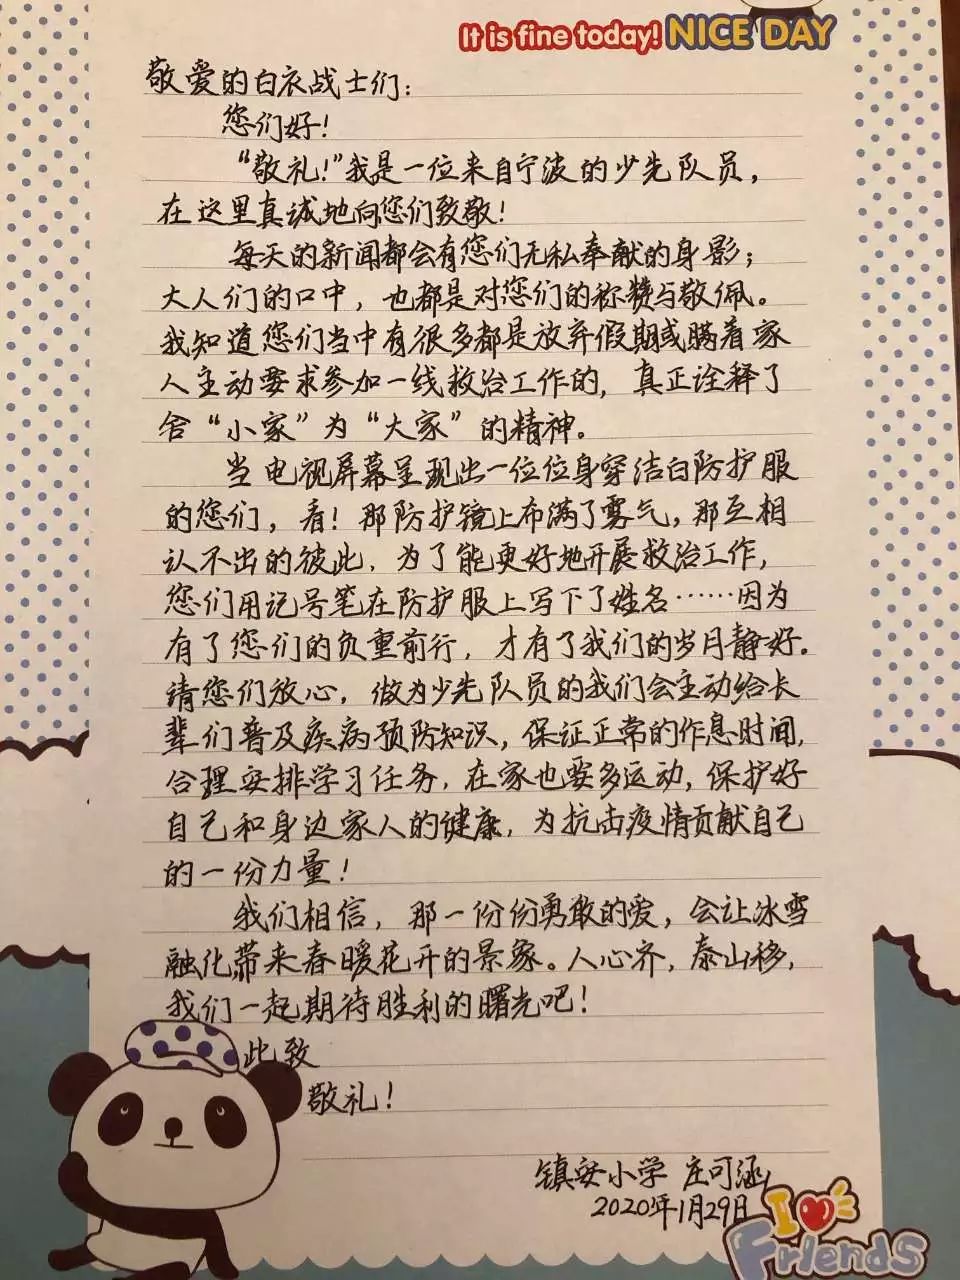 It is fine today! NICE DAY
敬爱的白衣战士们：
您们好！
“敬礼！”我是一位来自宁波的少先队员，
在这里真诚地向您们致敬！
每天的新闻都会有您们无私奉献的身影；
大人们的口中，也都是对您们的称赞与敬佩。
我知道您们当中有很多都是放弃假期或瞒着家
人主动要求参加一线救治工作的，真正诠释了
舍“小家”为“大家”的精神。
当电视屏幕呈现出一位位身穿洁白防护服
的您们，看！那防护镜上布满了雾气，那互相
认不出的彼此，为了能更好地开展救治工作，
您们用记号笔在防护服上写下了姓名……因为
有了您们的负重前行，才有了我们的岁月静好。
请您们放心，做为少先队员的我们会主动给长
辈们普及疾病预防知识，保证正常的作息时间，
合理安排学习任务，在家也要多运动，保护好
自己和身边家人的健康，为抗击疫情贡献自己
的一份力量！
我们相信，那一份份勇敢的爱，会让冰雪
融化带来春暖花开的景象。人心齐，泰山移，
我们一起期待胜利的曙光吧！
此致
敬礼！
镇安小学 庄可涵
2020年1月29日
I
Friends